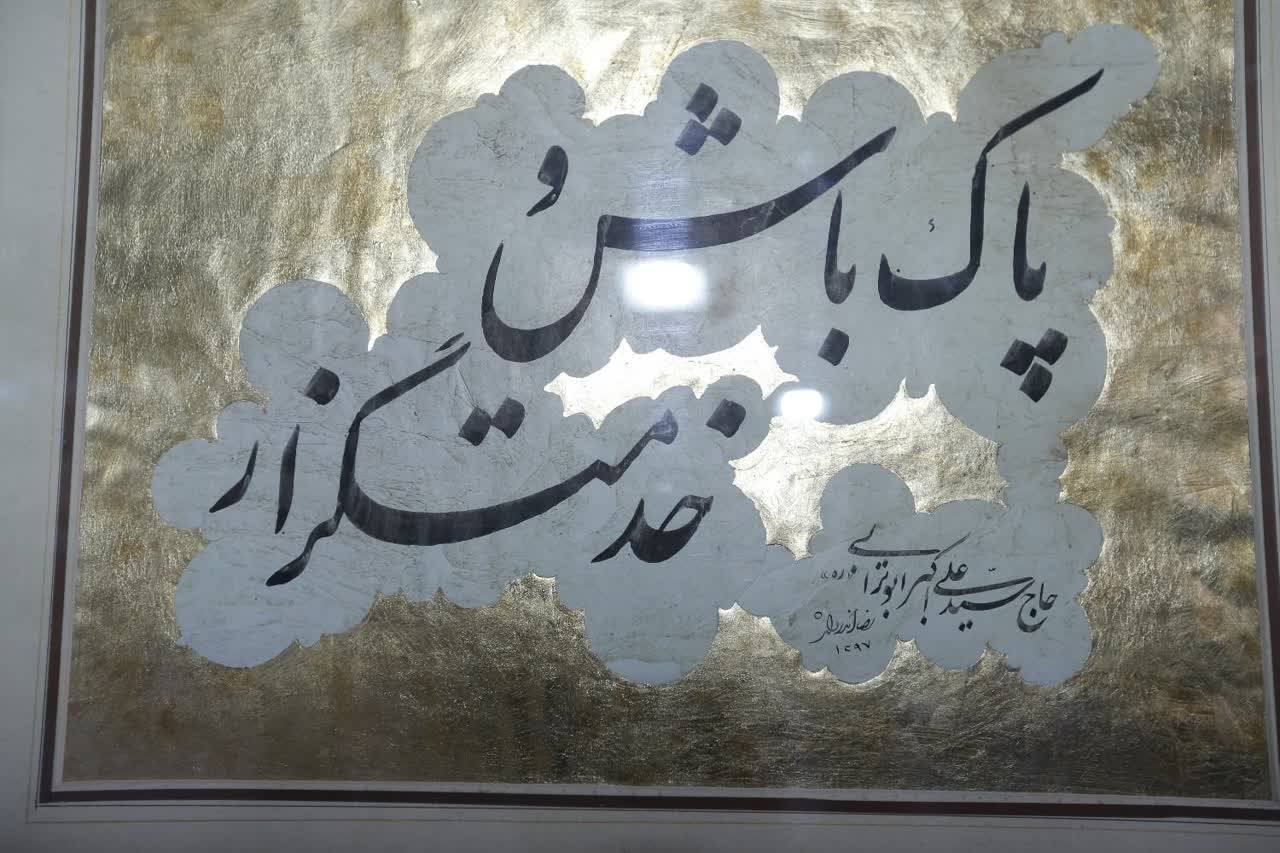 پاک باش و
خدمتگزار
حاج سید علی اکبر ابوترابی «ره»
۱۳۹۷